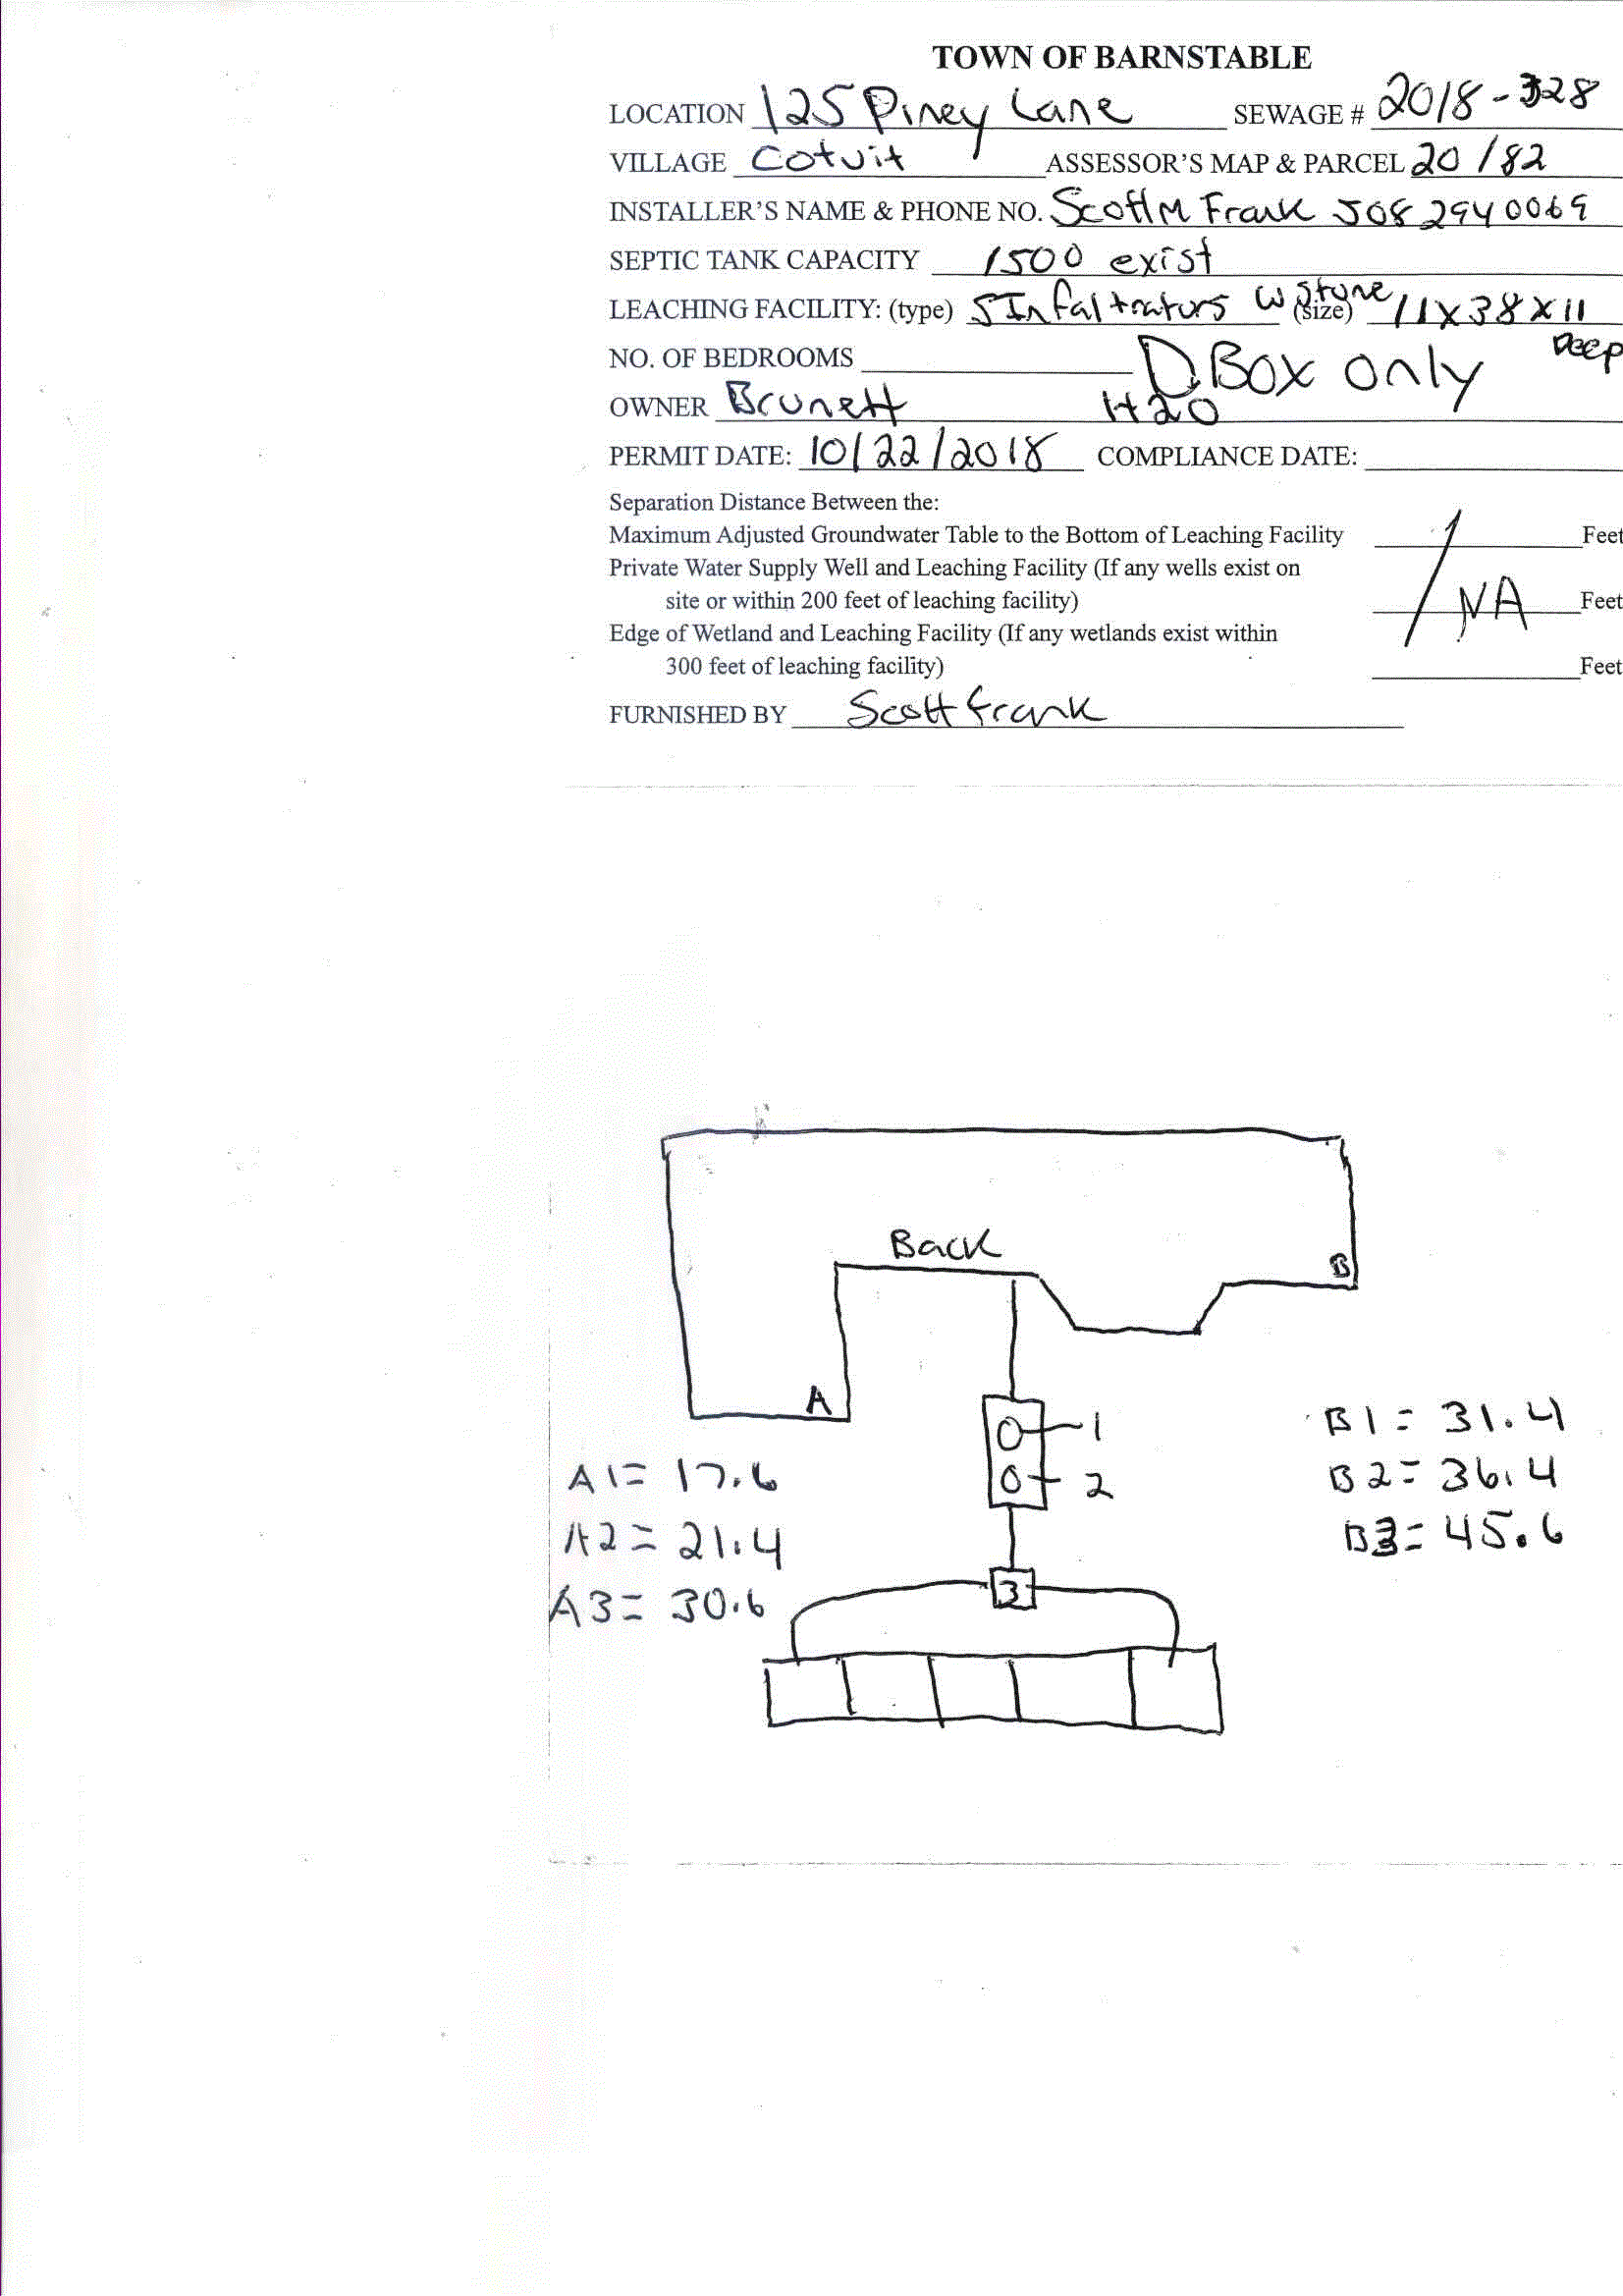 TOWN OF BARNSTABLE
LOCATION 125 Piney Lane SEWAGE # 2018-328
VILLAGE Cotuit ASSESSOR'S MAP & PARCEL 20/82
INSTALLER'S NAME & PHONE NO. Scott M Frank 508 2940069
SEPTIC TANK CAPACITY 1500 exist
LEACHING FACILITY: (type) 5 Infaltrators w stone (size) 11x38x11 Deep
NO. OF BEDROOMS D Box only
OWNER Brunett H20
PERMIT DATE: 10/22/2018 COMPLIANCE DATE:
Separation Distance Between the:
Maximum Adjusted Groundwater Table to the Bottom of Leaching Facility Feet
Private Water Supply Well and Leaching Facility (If any wells exist on
site or within 200 feet of leaching facility) NA Feet
Edge of Wetland and Leaching Facility (If any wetlands exist within
300 feet of leaching facility) Feet
FURNISHED BY Scott Frank
Back
B
A
1
2
3
A1= 17.6
A2= 21.4
A3= 30.6
B1= 31.4
B2= 36.4
B3= 45.6